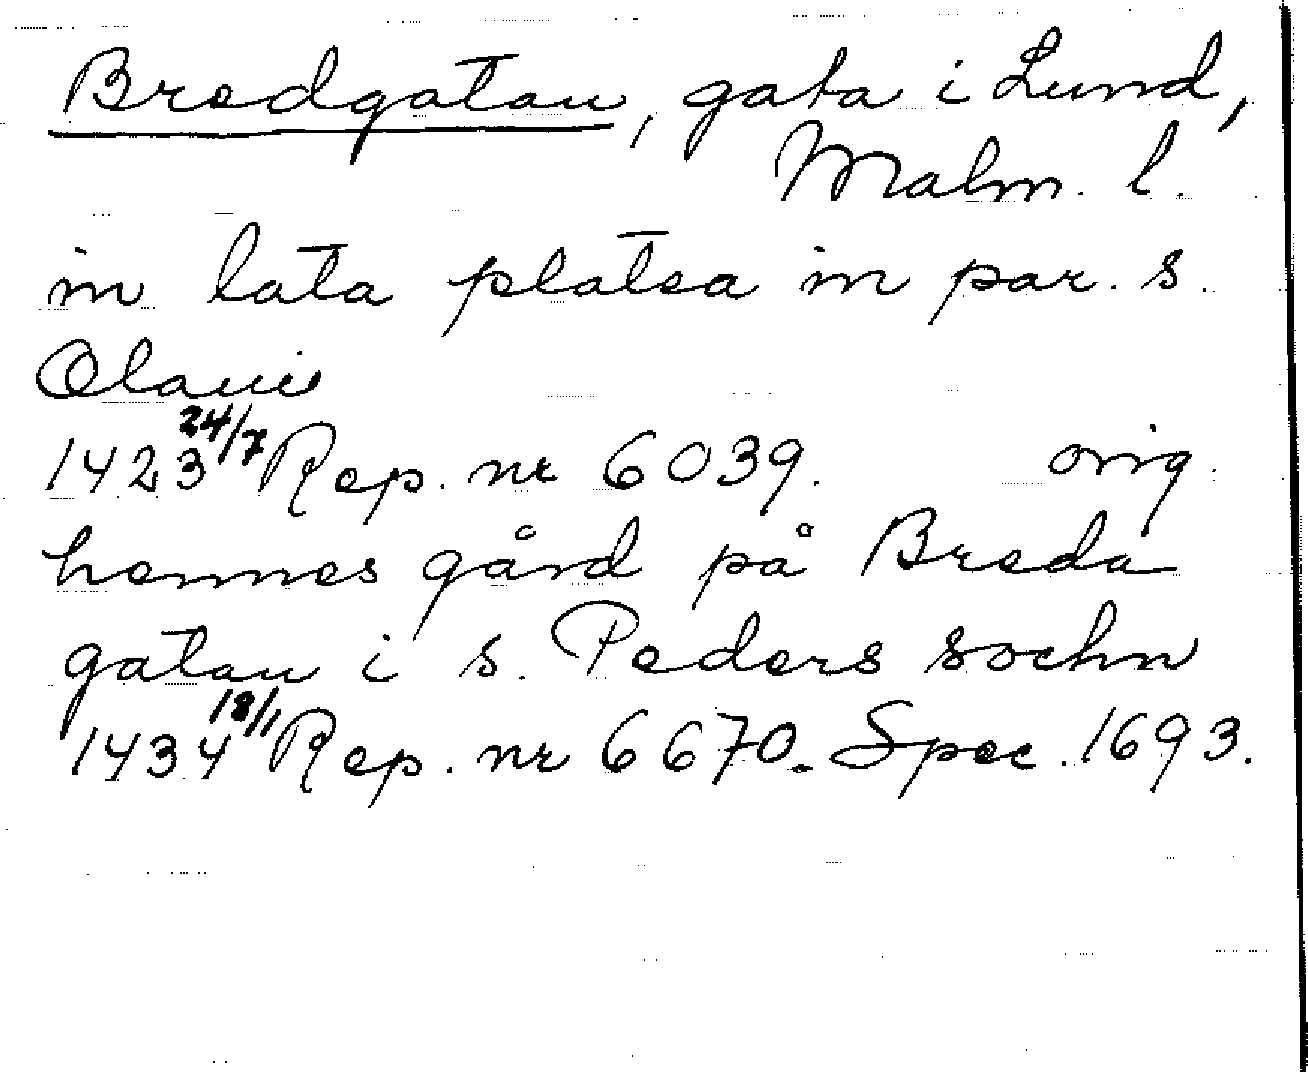 Bredgatan, gata i Lund,
Malm. l.
in lata platea in par. s.
Olaui
1423 24/7 Rep. nr 6039. orig.
hennes gård på Breda
gatan i s. Peders sochn
1434 18/1 Rep. nr 6670. Spec. 1693.